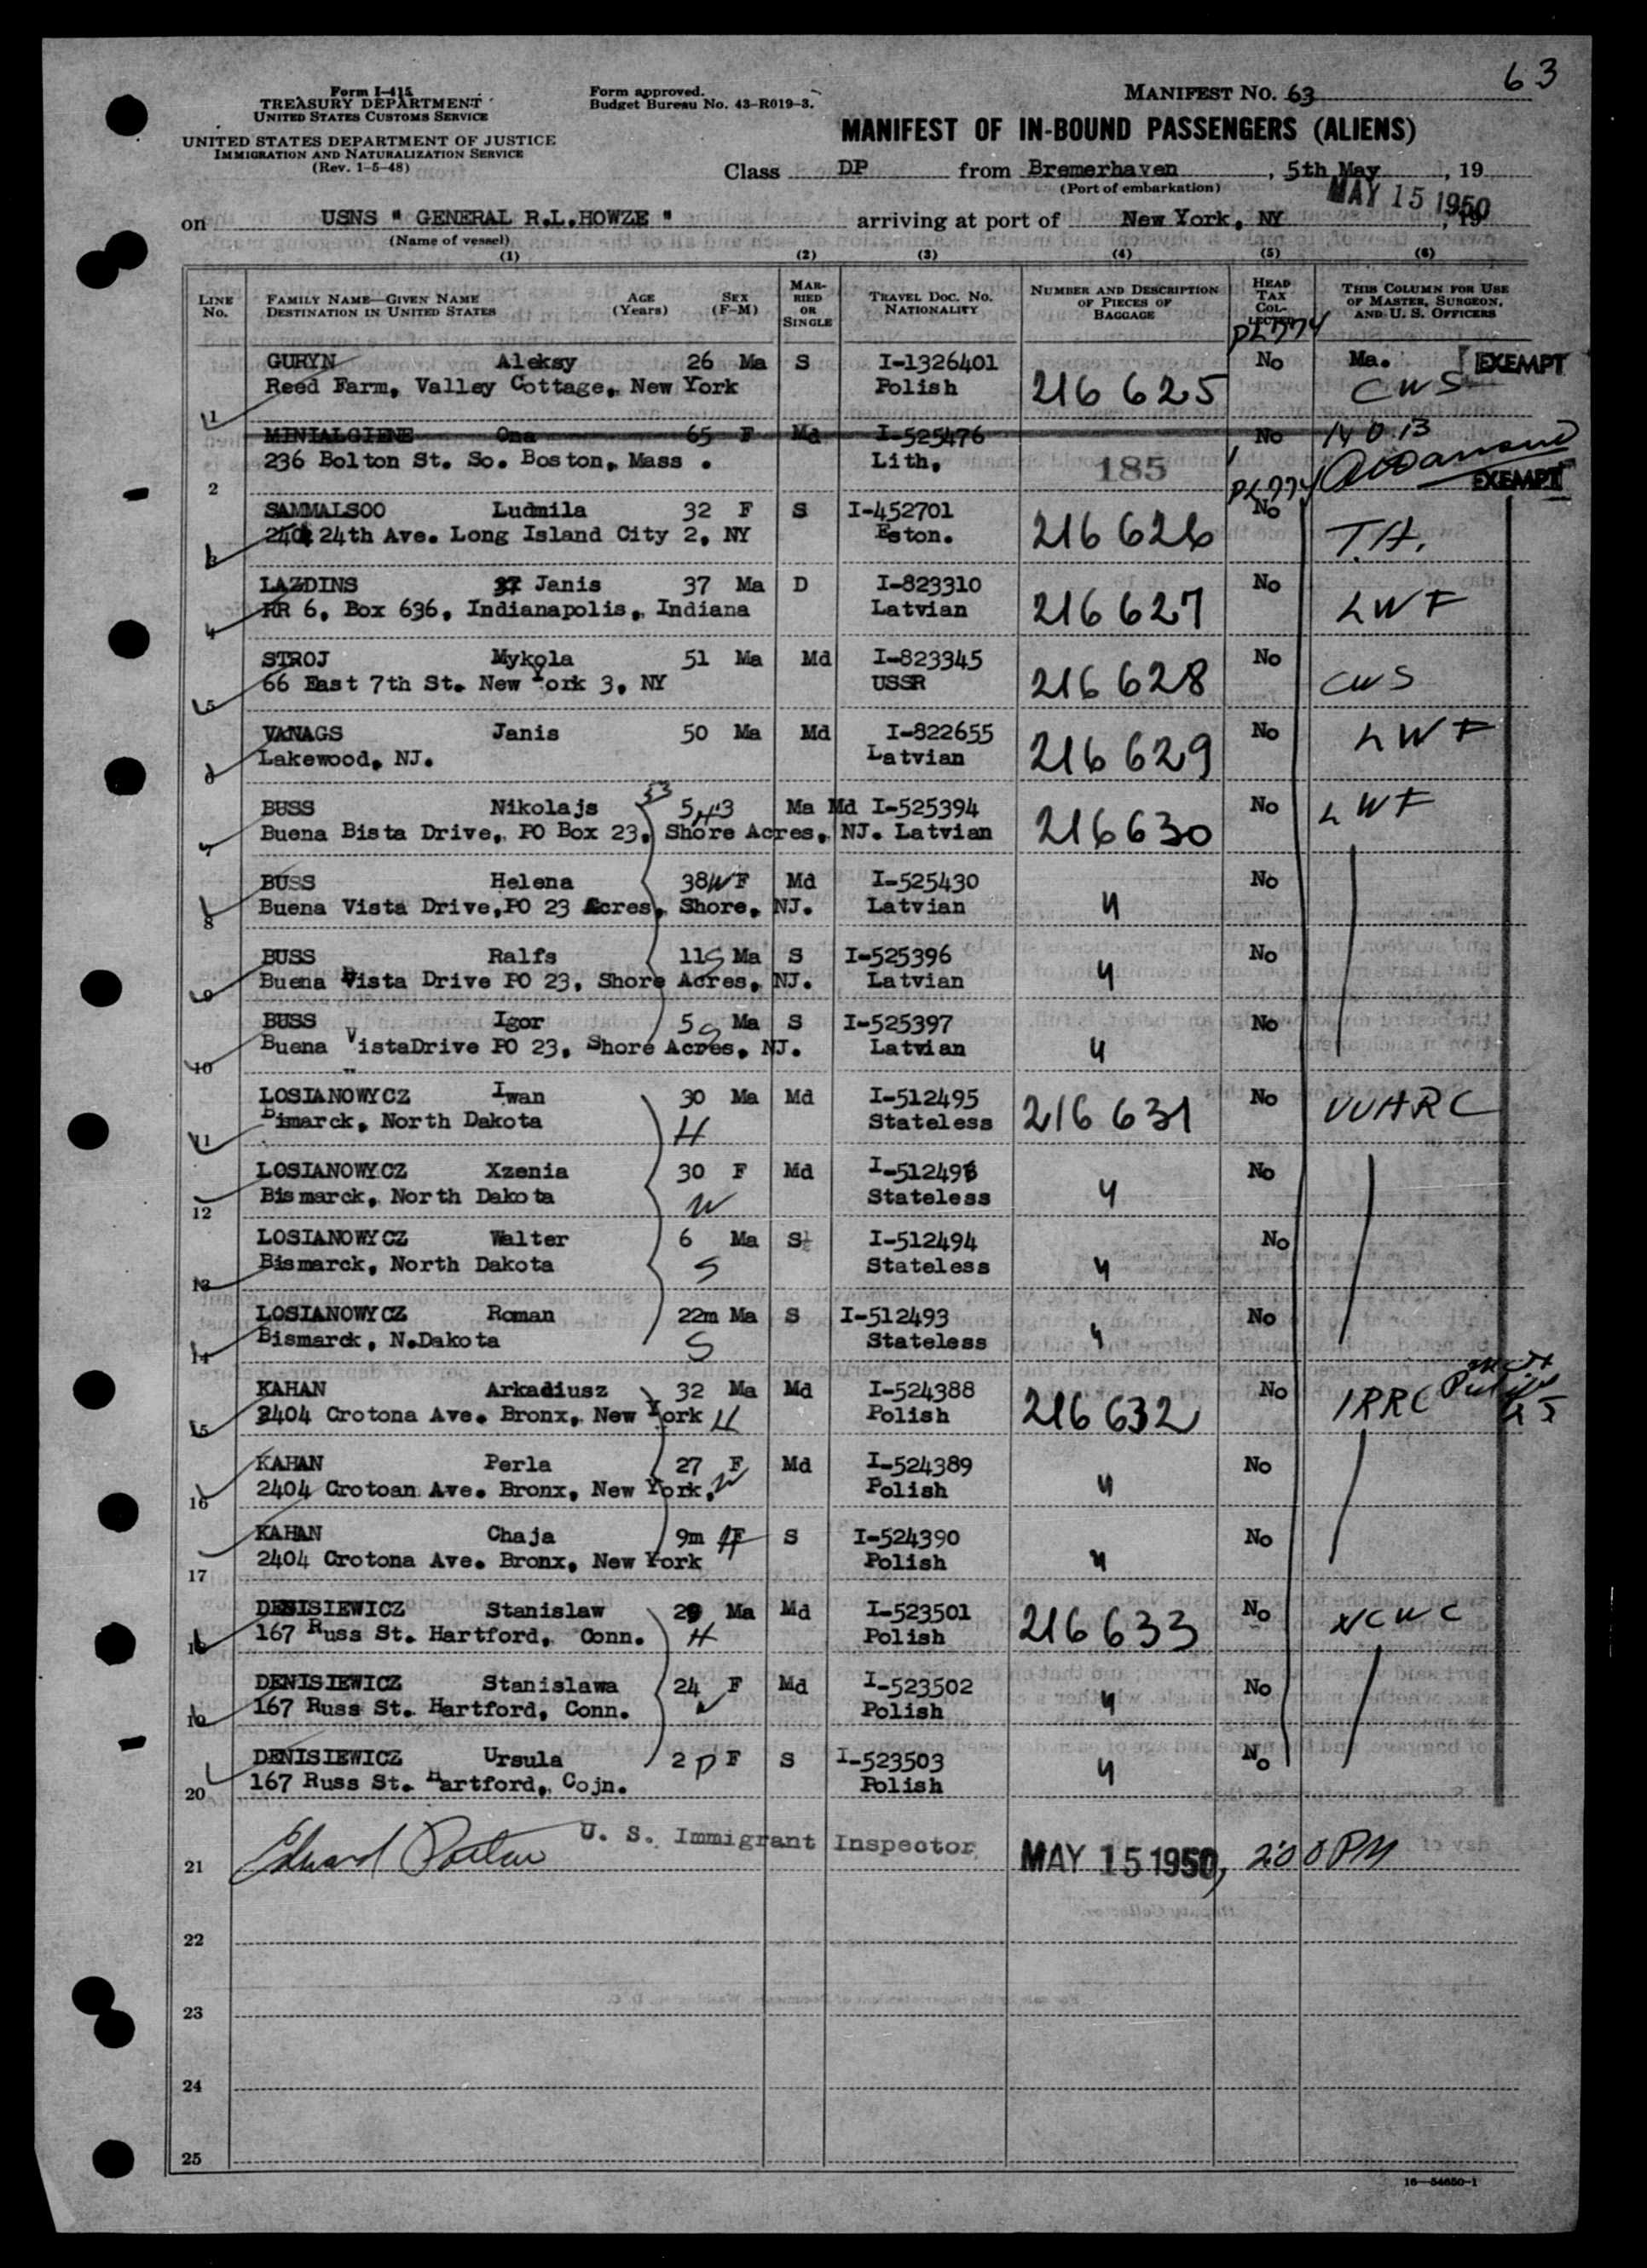 63
Form I-415
TREASURY DEPARTMENT
UNITED STATES CUSTOMS SERVICE
UNITED STATES DEPARTMENT OF JUSTICE
IMMIGRATION AND NATURALIZATION SERVICE
(Rev. 1-5-48)
Form approved.
Budget Bureau No. 43-R019-3.
MANIFEST NO. 63
MANIFEST OF IN-BOUND PASSENGERS (ALIENS)
Class DP from Bremerhaven, 5th May, 19
(Port of embarkation)
MAY 15 1950
on USNS " GENERAL R.L.HOWZE " arriving at port of New York, NY, 19
(Name of vessel)
(1) (2) (3) (4) (5) (6)
LINE No. FAMILY NAME—GIVEN NAME DESTINATION IN UNITED STATES AGE (Years) SEX (F-M) MARRIED OR SINGLE TRAVEL DOC. NO. NATIONALITY NUMBER AND DESCRIPTION OF PIECES OF BAGGAGE HEAD TAX COLLECTED THIS COLUMN FOR USE OF MASTER, SURGEON, AND U. S. OFFICERS
PL774
GURYN Aleksy 26 Ma S I-1326401 No Ma. EXEMPT
1 Reed Farm, Valley Cottage, New York Polish 216 625 CWS
MINIALGIENE Ona 65 F Md I-525476 No
2 236 Bolton St. So. Boston, Mass . Lith, 185
PL774 EXEMPT
SAMMALSOO Ludmila 32 F S I-452701 No
3 24th Ave. Long Island City 2, NY Eston. 216 626 T.A.
LAZDINS Janis 37 Ma D I-823310 No
4 RR 6, Box 636, Indianapolis, Indiana Latvian 216 627 LWF
STROJ Mykola 51 Ma Md I-823345 No
5 66 East 7th St. New York 3, NY USSR 216 628 CWS
VANAGS Janis 50 Ma Md I-822655 No
6 Lakewood, NJ. Latvian 216 629 LWF
53
BUSS Nikolajs 5 H 3 Ma Md I-525394 No LWF
7 Buena Bista Drive, PO Box 23, Shore Acres, NJ. Latvian 216630
BUSS Helena 38 W F Md I-525430 No
8 Buena Vista Drive, PO 23 Acres, Shore, NJ. Latvian "
BUSS Ralfs 11 S Ma S I-525396 No
9 Buena Vista Drive PO 23, Shore Acres, NJ. Latvian "
BUSS Igor 5 S Ma S I-525397 No
10 Buena VistaDrive PO 23, Shore Acres, NJ. Latvian "
LOSIANOWYCZ Iwan 30 Ma Md I-512495 No
11 Bimarck, North Dakota H Stateless 216 631 UUARC
LOSIANOWYCZ Xzenia 30 F Md No
12 Bismarck, North Dakota W Stateless "
LOSIANOWYCZ Walter 6 Ma S I-512494 No
13 Bismarck, North Dakota S Stateless "
LOSIANOWYCZ Roman 22m Ma S I-512493 No
14 Bismarck, N.Dakota S Stateless "
KAHAN Arkadiusz 32 Ma Md I-524388 No
15 2404 Crotona Ave. Bronx, New York H Polish 216 632 IRRC
KAHAN Perla 27 F Md I-524389 No
16 2404 Crotoan Ave. Bronx, New York, W Polish "
KAHAN Chaja 9m F S I-524390 No
17 2404 Crotona Ave. Bronx, New York Polish "
DENISIEWICZ Stanislaw 29 Ma Md I-523501 No
18 167 Russ St. Hartford, Conn. H Polish 216 633 NCWC
DENISIEWICZ Stanislawa 24 F Md I-523502 No
19 167 Russ St. Hartford, Conn. W Polish "
DENISIEWICZ Ursula 2 D F S I-523503 No
20 167 Russ St. Hartford, Cojn. Polish "
U. S. Immigrant Inspector
21 MAY 15 1950, 2:00 PM
22
23
24
25
16—54650-1